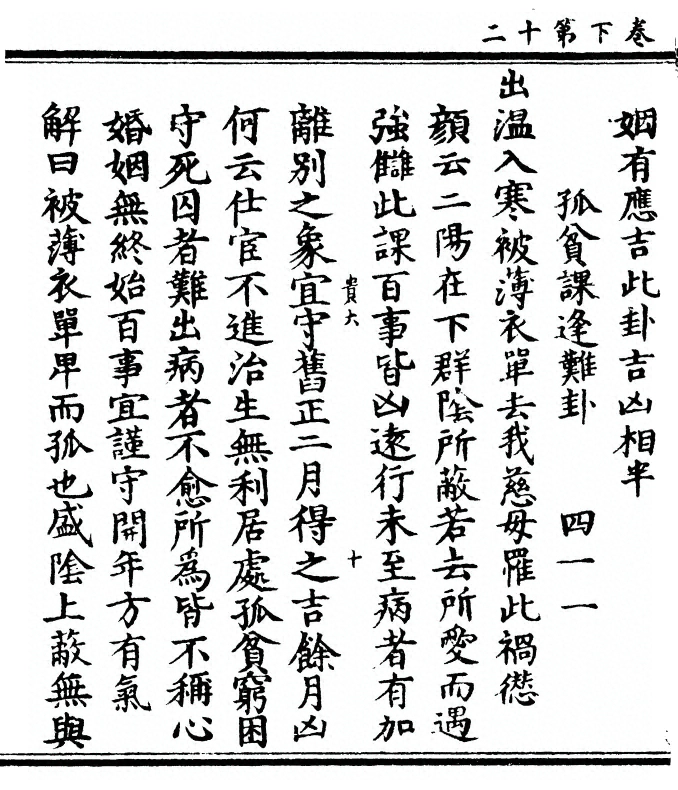 卷下第十二
姻有應吉此卦吉凶相半
孤貧課逢難卦 四一一
出温入寒被薄衣單去我慈母罹此禍愆
顔云二陽在下群隂所蔽若去所愛而遇
強讎此課百事皆凶遠行未至病者有加
離別之象宜守舊正二月得之吉餘月凶
貴大
十
何云仕宦不進治生無利居處孤貧窮困
守死囚者難出病者不愈所為皆不稱心
婚姻無終始百事宜謹守開年方有氣
解曰被薄衣單卑而孤也盛隂上蔽無與